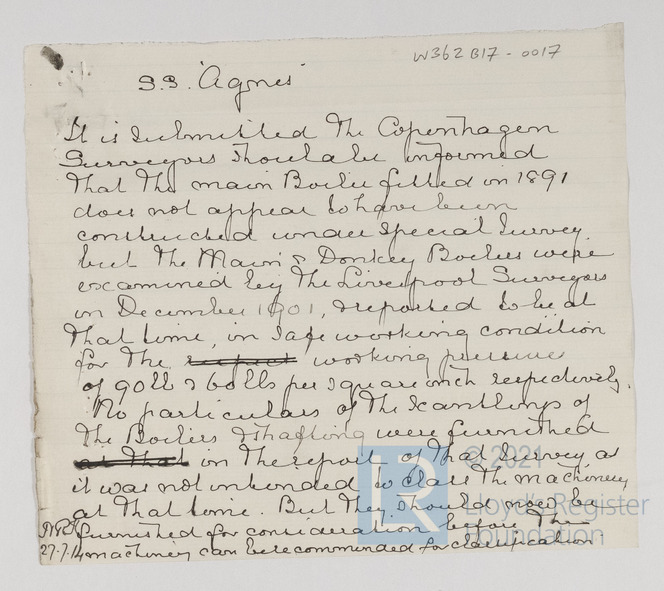 W362 B17 - 0017
S.S. 'Agnes'
It is submitted the Copenhagen
Surveyors should be informed
that the main Boiler fitted in 1891
does not appear to have been
constructed under special survey
but the Main & Donkey Boilers were
examined by the Liverpool Surveyors
in December 1901, & reported to be at
that time, in safe working condition
for the working pressures
of 90lb & 60lbs per square inch respectively.
No particulars of the scantlings of
the Boilers & shafting were furnished
in the report of that survey as
it was not intended to class the machinery
at that time. But they should now be
furnished for consideration before the
machinery can be recommended for classification
27.7.14
© 2021
Lloyd's Register
Foundation
LR